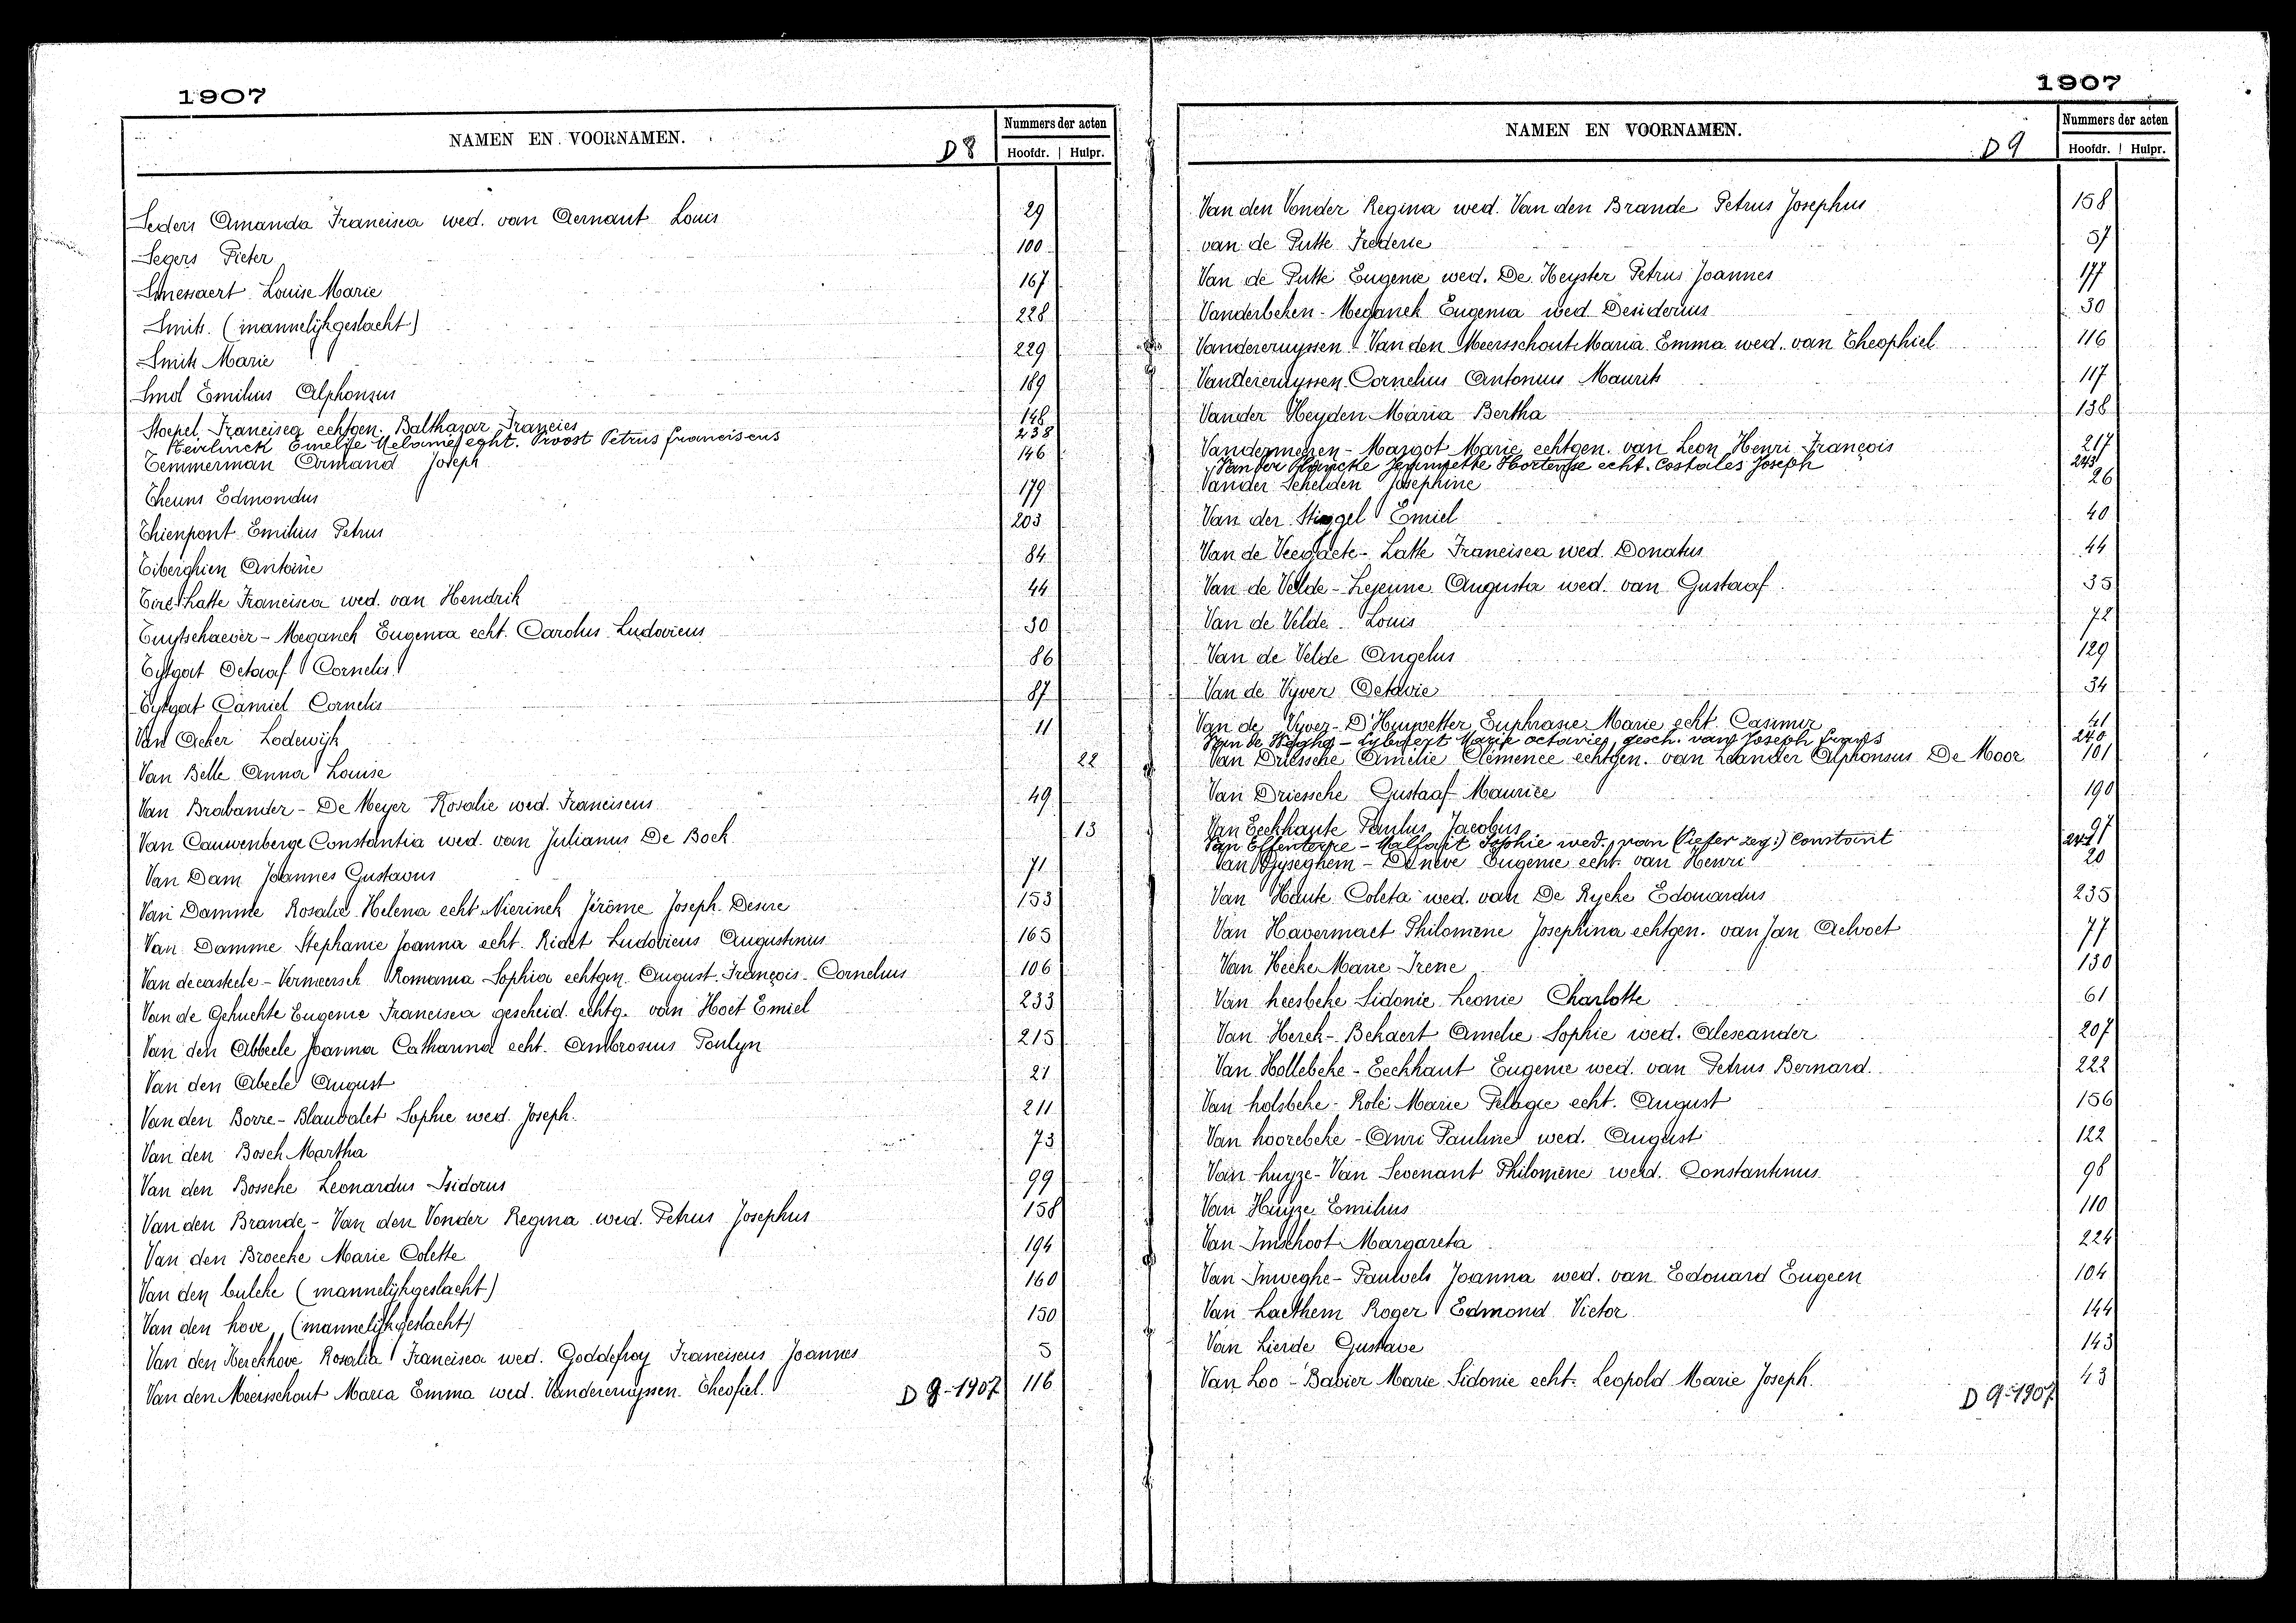 1907
NAMEN EN VOORNAMEN.
D 8
Nummers der acten
Hoofdr. Hulpr.
Seders Amanda Francisca wed. van Aernaut Louis 29
Segers Pieter 100
Smessaert Louise Marie 167
Smits (mannelijkgeslacht) 228
Smits Marie 229
Smol Emilius Alphonsus 189
Stoepel Francisca echtgen. Balthazar Francies 148
Keirlinck Emelie Melanie echt. Proost Petrus franciscus 238
Temmerman Armand Joseph 146
Theuns Edmondus 179
Thienpont Emilius Petrus 203
Tiberghien Antoine 84
Latte Francisca wed. van Hendrik 44
Tuytschaever - Meganck Eugenia echt. Carolus Ludovicus 30
Tytgat Octaaf Cornelis 86
Tytgat Camiel Cornelis 87
Van Acker Lodewijk 11
Van Belle Anna Louise 22
Van Brabander - De Meyer Rosalie wed. Franciscus 49
Van Cauwenberge Constantia wed. van Julianus De Bock 13
Van Dam Joannes Gustavus 71
Van Damme Rosalie Helena echt. Nierinck Jérôme Joseph Desire 153
Van Damme Stephanie Joanna echt. Ridet Ludovicus Augustinus 165
Van decasteele - Vermeersch Romania Sophia echtgen. August François Cornelius 106
Van de Gehuchte Eugenie Francisca gescheid. echtg. van Hoet Emiel 233
Van den Abbeele Joanna Catharina echt. Ambrosius Poulyn 215
Van den Abeele August 21
Van den Borre - Blauvalet Sophie wed. Joseph. 211
Van den Bosch Martha 73
Van den Bossche Leonardus Isidorus 99
Van den Brande - Van den Vonder Regina wed. Petrus Josephus 158
Van den Broecke Marie Colette 194
Van den bulcke (mannelijkgeslacht) 160
Van den hove (mannelijkgeslacht) 150
Van den Kerckhove Rosalia Francisca wed. Goddefroy Franciscus Joannes 5
Van den Meersschout Maria Emma wed. Vandercruyssen Theofiel. 116
D 8-1907
1907
NAMEN EN VOORNAMEN.
D 9
Nummers der acten
Hoofdr. Hulpr.
Van den Vonder Regina wed. Van den Brande Petrus Josephus 158
van de Putte Frederic 57
Van de Putte Eugenie wed. De Keyster Petrus Joannes 177
Vanderbeken - Meganck Eugenia wed Desiderius 30
Vandercruyssen Van den Meersschout Maria Emma wed. van Theophiel 116
Vandercruyssen Cornelius Antonius Maurits 117
Vander Heyden Maria Bertha 138
Vandermeeren - Margot Marie echtgen. van Leon Henri François 217
Vander Plancke Jeannette Hortense echt. Costales Joseph 243
Vander Schelden Josephine 26
Van der Stiggel Emiel 40
Van de Veegaete - Latte Francisca wed. Donatus 44
Van de Velde - Lejeune Augusta wed. van Gustaaf 35
Van de Velde Louis 72
Van de Velde Angelus 129
Van de Vyver Octavie 34
Van de Vyver - D'Huyvetter Euphrasie Marie echt. Casimir 41
Van de - Lybaert Marie octavie, gesch. van Joseph frans 240
Van Driessche Emilie Clémence echtgen. van Leander Alphonsus De Moor 101
Van Driessche Gustaaf Maurice 190
Van Eeckhaute Paulus Jacobus 97
Van Effenterre - Malfait Sophie wed. van (liefer zeg:) Constant 241
Van Gyseghem - De neve Eugenie echt. van Henri 20
Van Haute Coleta wed. van De Rycke Edouardus 235
Van Havermaet Philomène Josephina echtgen. van Jan Aelvoet 77
Van Hecke Marie Irene 130
Van heesbeke Sidonie Leonie Charlotte 61
Van Herck - Bekaert Amelie Sophie wed. Alexander 207
Van Hollebeke - Eeckhaut Eugenie wed. van Petrus Bernard. 222
Van holsbeke - Rolé Marie Pelagie echt. August 156
Van hoorebeke - Anri Pauline wed. August 122
Van huyze - Van Sevenant Philomène wed. Constantinus 98
Van Huyze Emilius 110
Van Imschoot Margareta 224
Van Inweghe - Pauwels Joanna wed. van Edouard Eugeen 104
Van Laethem Roger Edmond Victor 144
Van Lierde Gustave 143
Van Loo - Babier Marie Sidonie echt. Leopold Marie Joseph. 43
D 9-1907